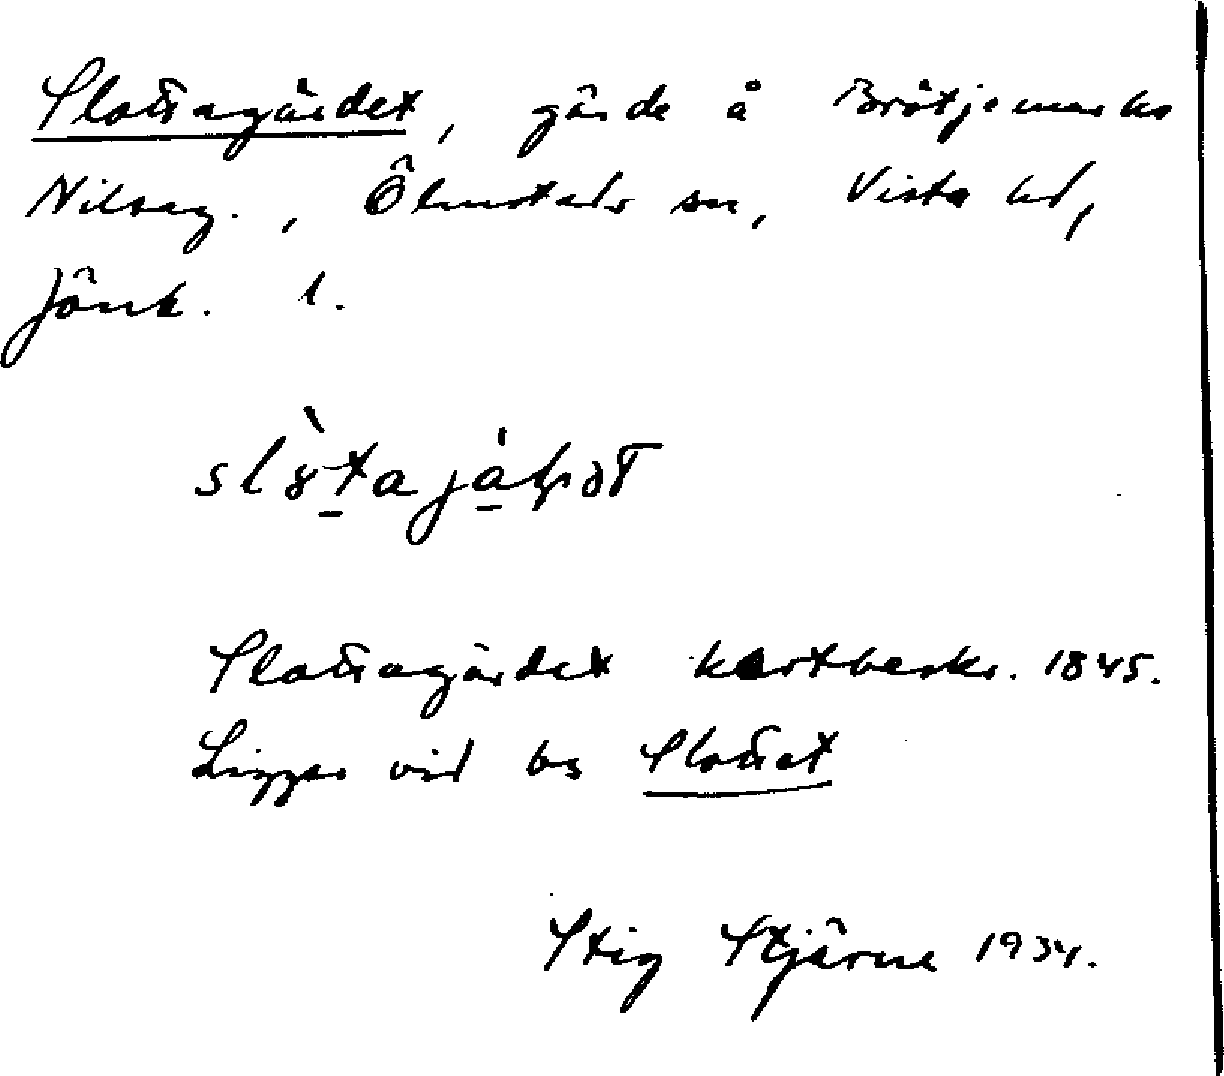 Slottagärdet, gärde å Brötjemarks
Nilsag., Ölmstads sn, Vista hd,
Jönk. l.
Slottagärdet kartbeskr. 1845.
Ligger vid bs Slottet
Stig Stjärne 1934.